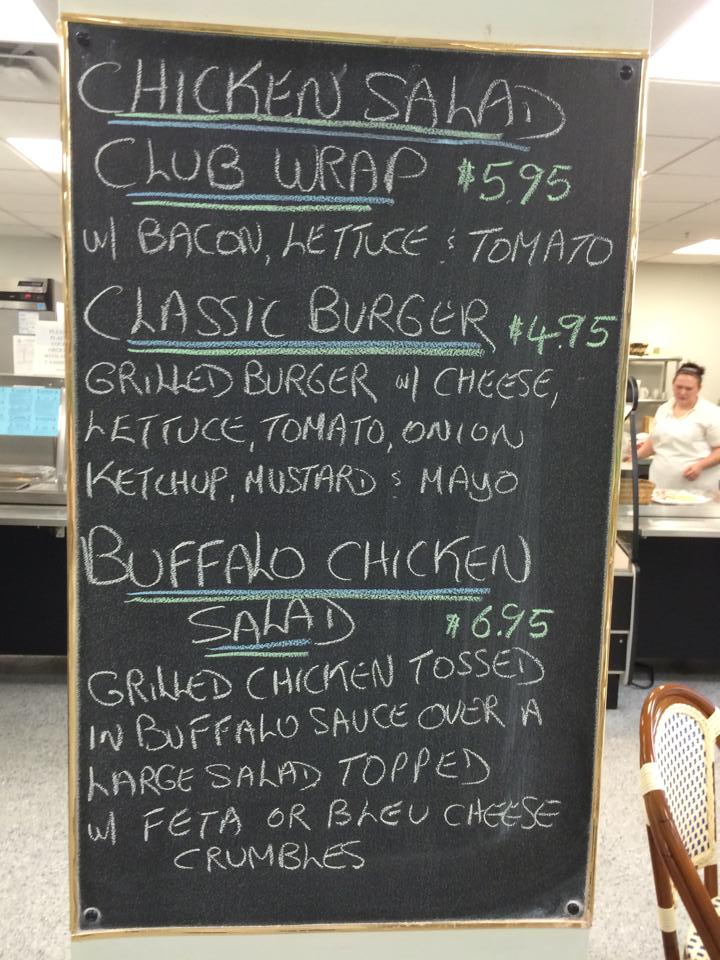 CHICKEN SALAD
CLUB WRAP $5.95
W/ BACON, LETTUCE & TOMATO
CLASSIC BURGER $4.95
GRILLED BURGER W/ CHEESE,
LETTUCE, TOMATO, ONION
KETCHUP, MUSTARD & MAYO
BUFFALO CHICKEN
SALAD $6.95
GRILLED CHICKEN TOSSED
IN BUFFALO SAUCE OVER A
LARGE SALAD TOPPED
W/ FETA OR BLEU CHEESE
CRUMBLES